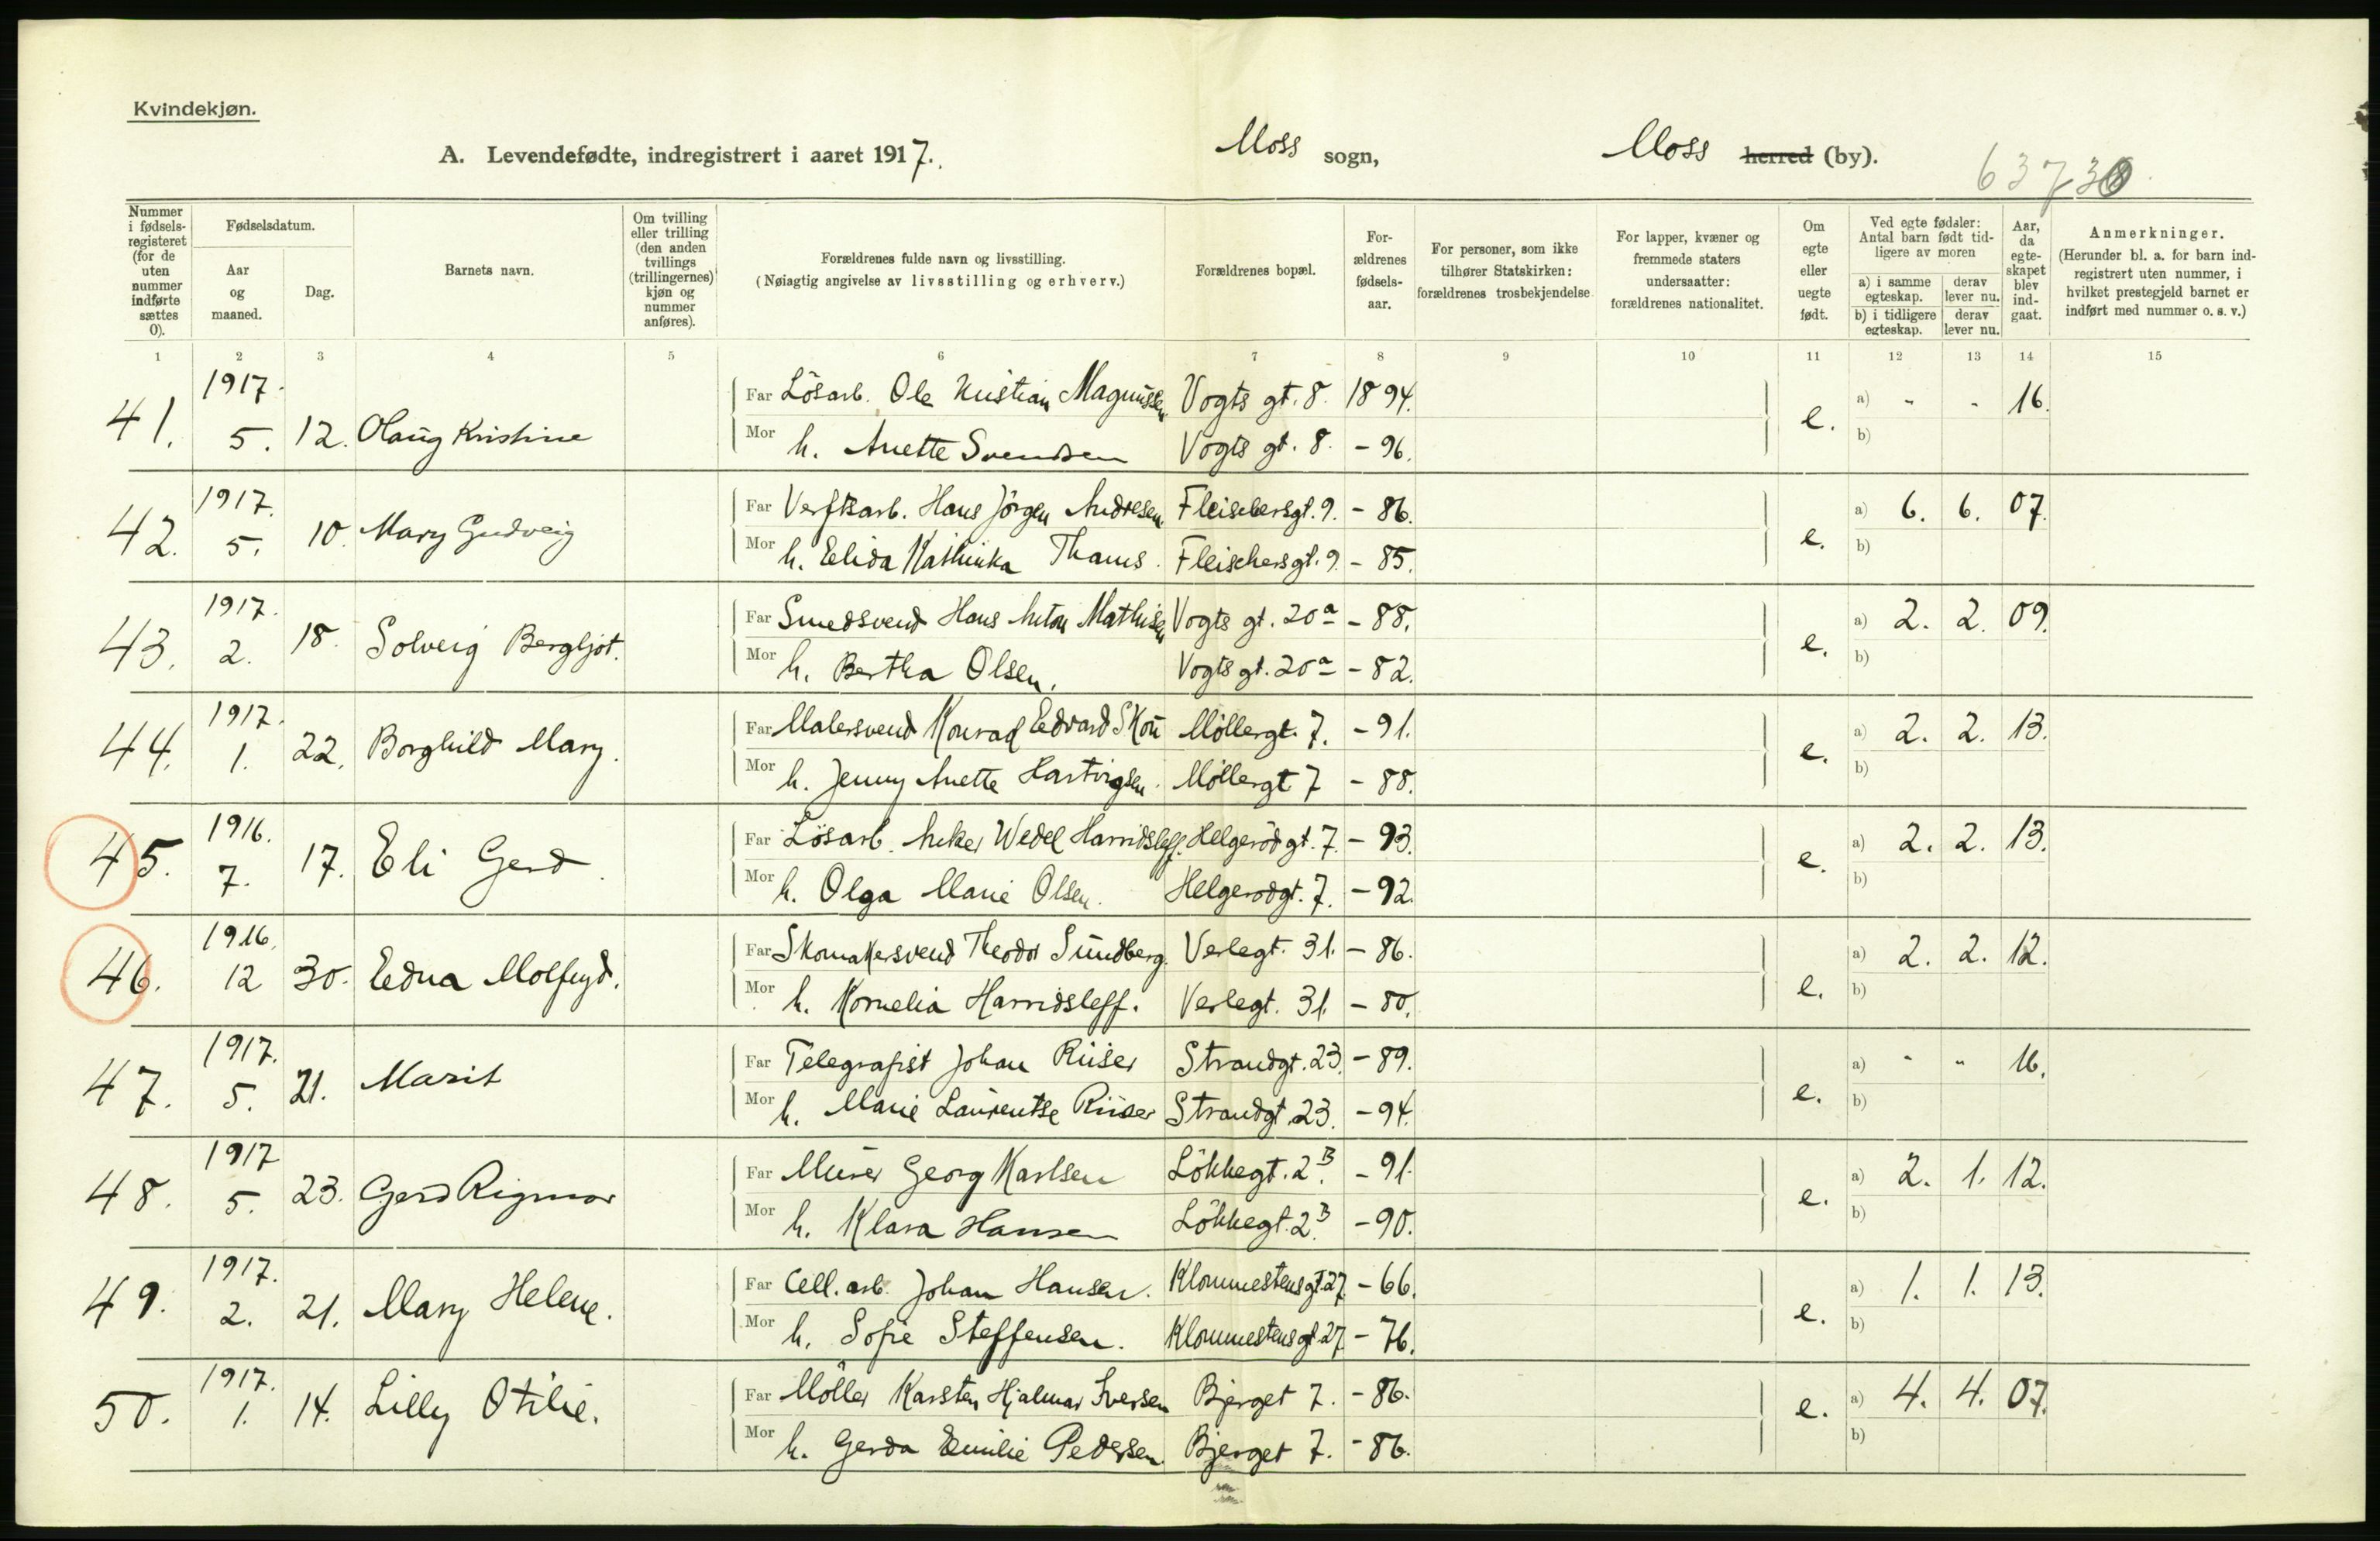 Kvindekjøn.
A. Levendefødte, indregistrert i aaret 1917. Moss sogn, Moss herred (by).
6373
Nummer i fødsels-registeret (for de uten nummer indførte sættes 0).
Fødselsdatum.
Aar og maaned.
Dag.
Barnets navn.
Om tvilling eller trilling (den anden tvillings (trillingernes) kjøn og nummer anføres).
Forældrenes fulde navn og livsstilling.
(Nøiagtig angivelse av livsstilling og erhverv.)
Forældrenes bopæl.
For-ældrenes fødsels-aar.
For personer, som ikke tilhører Statskirken: forældrenes trosbekjendelse
For lapper, kvæner og fremmede staters undersaatter: forældrenes nationalitet.
Om egte eller uegte født.
Ved egte fødsler: Antal barn født tid-ligere av moren
a) i samme egteskap.
derav lever nu.
b) i tidligere egteskap.
derav lever nu.
Aar, da egte-skapet blev ind-gaat.
Anmerkninger.
(Herunder bl. a. for barn ind-registrert uten nummer, i hvilket prestegjeld barnet er indført med nummer o. s. v.)
1 2 3 4 5 6 7 8 9 10 11 12 13 14 15
1917. Far Lösarb. Ole Kristian Magnussen Vogts gt. 8. 1894. a) " " 16.
41. 5. 12. Olaug Kristine Mor h. Anette Svendsen Vogts gt. 8. - 96. e. b)
1917. Far Verftsarb. Hans Jörgen Andresen. Fleischersgt. 9. - 86. a) 6. 6. 07.
42. 5. 10. Mary Gudveig Mor h. Elida Kathinka Thams. Fleischersgt. 9. - 85. e. b)
1917. Far Smedsvend Hans Anton Mathisen Vogts gt. 20a - 88. a) 2. 2. 09.
43. 2. 18. Solveig Bergljot. Mor h. Bertha Olsen. Vogts gt. 20a - 82. e. b)
1917. Far Malersvend Konrad Edvard Skou Möllergt. 7. - 91. a) 2. 2. 13.
44. 1. 22. Borghild Mary. Mor h. Jenny Anette Hartvigsen. Möllergt 7 - 88. e. b)
1916. Far Lösarb. Anker Wedel Harridsleff. Helgerödgt. 7. - 93. a) 2. 2. 13.
45. 7. 17. Eli Gerd. Mor h. Olga Marie Olsen. Helgerodgt. 7. - 92. e. b)
1916. Far Skomakersvend Theodor Sundberg. Verlegt. 31. - 86. a) 2. 2. 12.
46. 12 30. Edna Molfryd. Mor h. Kornelia Harridsleff. Verlegt. 31. - 80. e. b)
1917. Far Telegrafist Johan Riiser Strandgt. 23. - 89. a) " " 16.
47. 5. 21. Marit Mor h. Marie Laurentse Riiser Strandgt. 23. - 94. e. b)
1917 Far Murer Georg Karlsen Lökkegt. 2B. - 91. a) 2. 1. 12.
48. 5. 23. Gerd Rigmor Mor h. Klara Hansen Lökkegt. 2B. - 90. e. b)
1917. Far Cell. arb. Johan Hansen. Klommestensgt. 27. - 66. a) 1. 1. 13.
49. 2. 21. Mary Helene. Mor h. Sofie Steffensen. Klommestensgt. 27. - 76. e. b)
1917. Far Möller Karsten Hjalmar Iversen Bjerget 7. - 86. a) 4. 4. 07.
50. 1. 14. Lilly Otilie. Mor h. Gerda Emilie Pedersen. Bjerget 7. - 86. e. b)